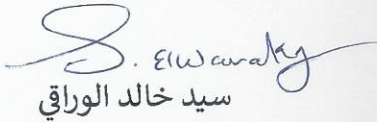 S. Elwaraky
سيد خالد الوراقي